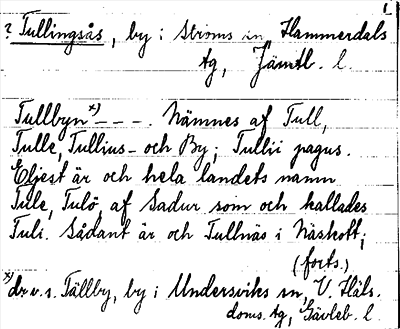 1.
? Tullingsås, by i Ströms sn, Hammerdals
tg, Jämtl. l.
Tullbyn x) - - - . Nämnes af Tull,
Tulle, Tullius- och By; Tullii pagus.
Eljest är och hela landets namn
Tule, Tulö, af Sadur som och kallades
Tuli. Sådant är och Tullnäs i Näskott;
(forts.)
x) d.v.s. Tällby, by i Undersviks sn, V. Häls.
doms. tg, Gävleb. l.